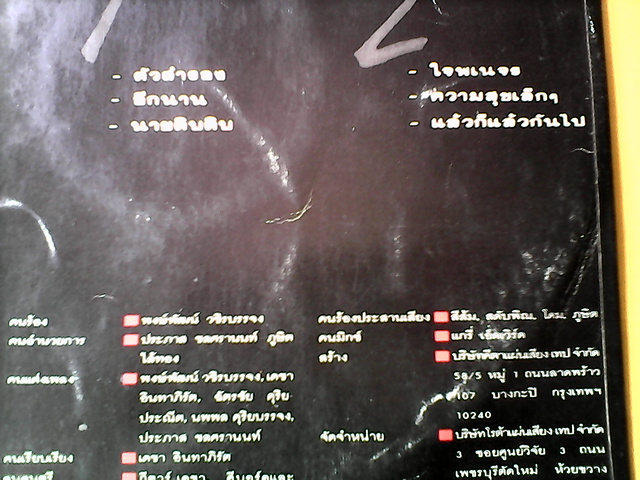 1
2
- ตัวสำรอง
- อีกนาน
- นายดิบดิบ
- ใจพเนจร
- ความสุขเล็กๆ
- แล้วก็แล้วกันไป
คนร้อง พงษ์พัฒน์ วชิรบรรจง
คนอำนวยการ ประภาส ชลศรานนท์ ภูษิต
ไล้ทอง
คนแต่งเพลง พงษ์พัฒน์ วชิรบรรจง, เดชา
อินทาภิรัต, ฉัตรชัย ดุริย-
ประณีต, นพพล ดุริยบรรจง,
ประภาส ชลศรานนท์
คนเรียบเรียง เดชา อินทาภิรัต
คนดนตรี กีตาร์ เดชา คีบอร์ดและ
คนร้องประสานเสียง สีส้ม, โดม, ภูษิต
คนมิกซ์ แกรี่
สร้าง บริษัทคีตาแผ่นเสียง เทป จำกัด
58/5 หมู่ 1 ถนนลาดพร้าว
107 บางกะปิ กรุงเทพฯ
10240
จัดจำหน่าย บริษัทโรต้าแผ่นเสียง เทป จำกัด
3 ซอยศูนย์วิจัย 3 ถนน
เพชรบุรีตัดใหม่ ห้วยขวาง